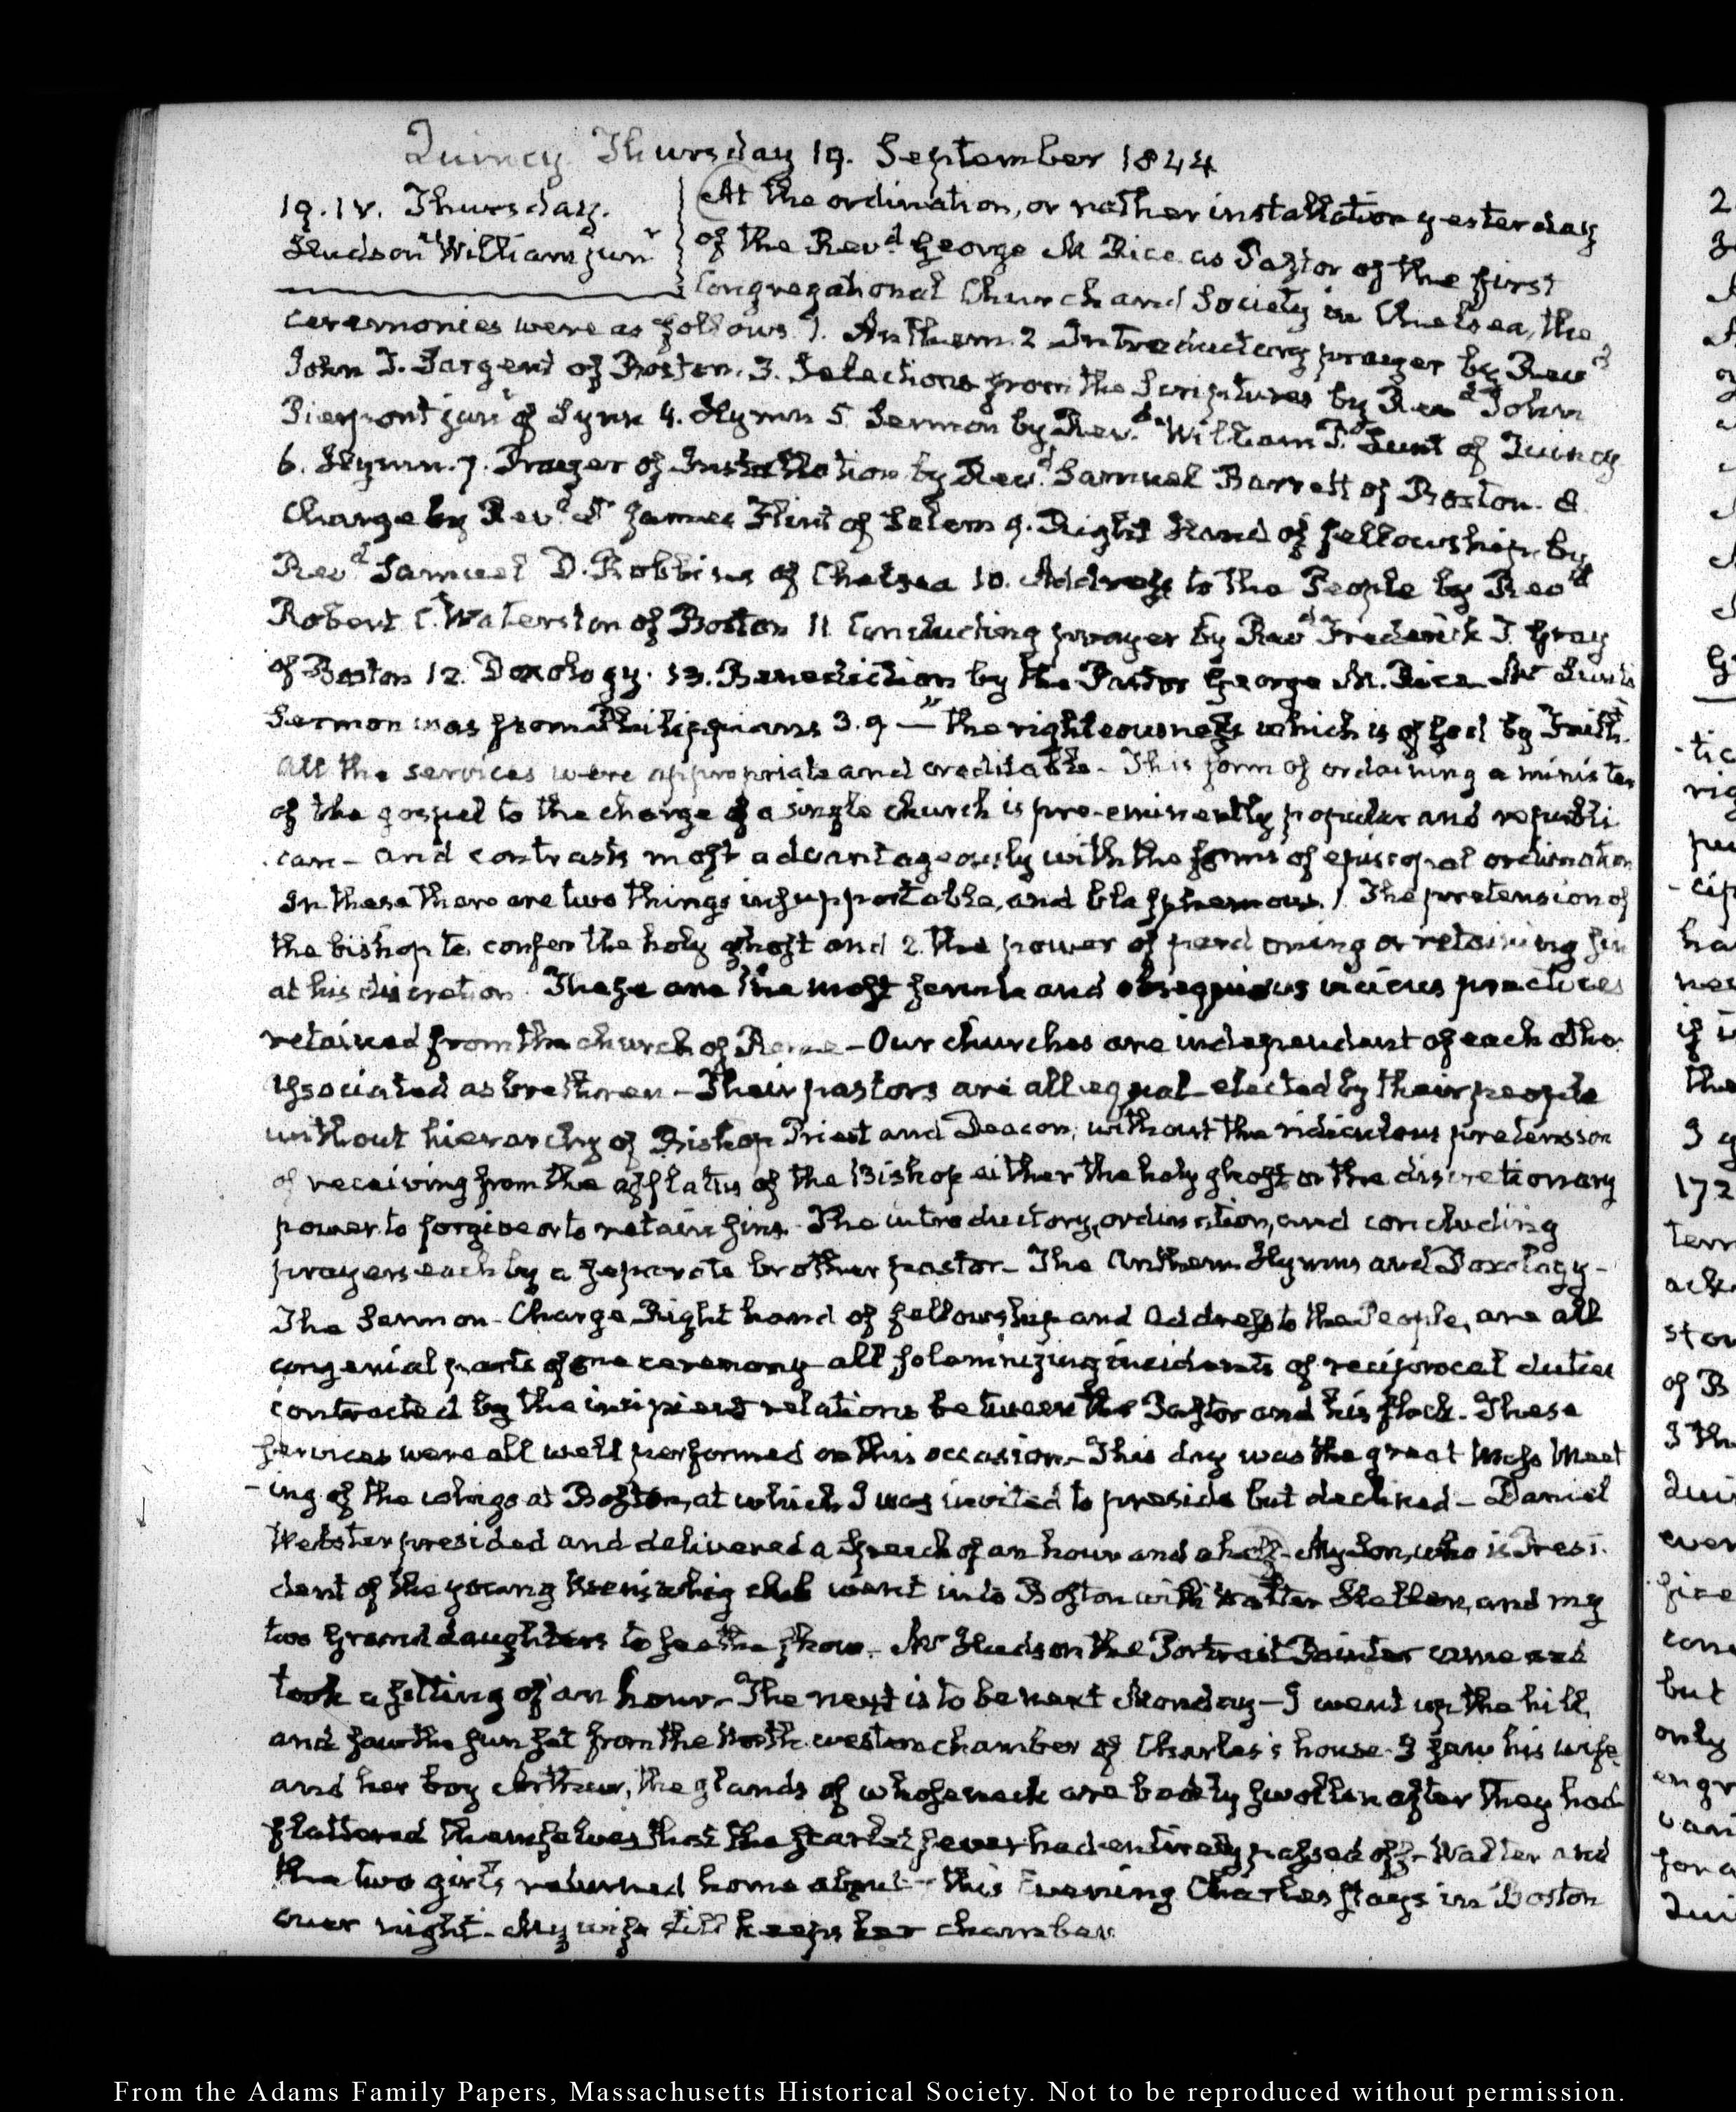 Quincy Thursday 19. September 1844
19. IV. Thursday.
Hudson William junr
At the ordination, or rather installation yesterday
of the Revd. George M Rice as Pastor of the first
Congregational Church and Society in Chelsea, the
ceremonies were as follows 1. Anthem. 2 Introductory prayer by Revd
John T. Sargent of Boston. 3. Selections from the Scriptures by Revd John
Pierpont junr of Lynn 4. Hymn 5 Sermon by Revd. William P. Lunt of Quincy
6. Hymn. 7. Prayer of Installation by Revd. Samuel Barrett of Boston. 8
Charge by Revd. Dr James Flint of Salem 9. Right Hand of fellowship, by
Revd. Samuel D. Robbins of Chelsea 10. Address to the People by Revd
Robert C. Waterston of Boston 11 Concluding prayer by Revd Frederick T. Gray
of Boston 12. Doxology. 13. Benediction by the Pastor George M. Rice Mr Lunt's
Sermon was from Philippians 3.9 — "the righteousness which is of God by Faith.
All the services were appropriate and creditable - This form of ordaining a minister
of the gospel to the charge of a single church is pre-eminently popular and republi
can - and contrasts most advantageously with the forms of episcopal ordination
In these there are two things insupportable, and blasphemous. 1. The pretension of
the bishop to confer the holy ghost and 2. the power of pardoning or retaining sin
at his discretion. These are the most servile and obsequious vicious practices
retained from the church of Rome - Our churches are independent of each other
associated as brethren - Their pastors are all equal - elected by their people
without hierarchy of Bishop Priest and Deacon; without the ridiculous pretension
of receiving from the afflatus of the Bishop either the holy ghost or the discretionary
power to forgive or to retain sins. The introductory, ordination, and concluding
prayers each by a separate brother pastor - The Anthem Hymns and Doxology -
The Sermon - Charge Right hand of fellowship and Address to the People, are all
congenial parts of one ceremony all solemnizing incidents of reciprocal duties
contracted by the incipient relations between the Pastor and his flock. These
services were all well performed on this occasion - This day was the great Mass Meet
-ing of the whigs at Boston, at which I was invited to preside but declined - Daniel
Webster presided and delivered a speech of an hour and a half - My Son, who is Presi
dent of the young men's whig club went into Boston with Walter Hellen, and my
two Grand daughters to see the show. Mr Hudson the Portrait Painter came and
took a sitting of an hour - The next is to be next Monday - I went up the hill
and saw the sun set from the North western chamber of Charles's house. I saw his wife
and her boy Arthur, the glands of whose neck are badly swollen after they had
flattered themselves that the scarlet fever had entirely passed off - Walter and
the two girls returned home about - this Evening Charles stays in Boston
over night. My wife still keeps her chamber
From the Adams Family Papers, Massachusetts Historical Society. Not to be reproduced without permission.